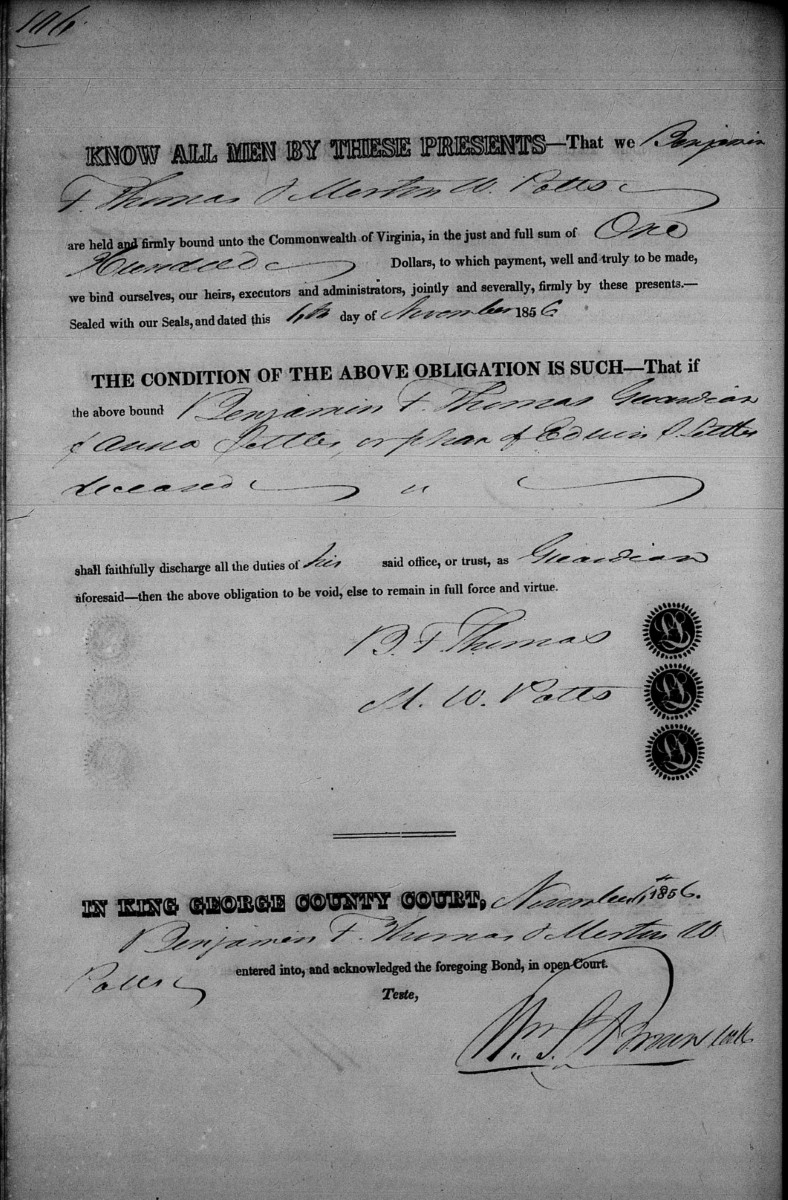 106
KNOW ALL MEN BY THESE PRESENTS—That we Benjamin
F. Thomas & W. Potts
are held and firmly bound unto the Commonwealth of Virginia, in the just and full sum of One
Hundred Dollars, to which payment, well and truly to be made,
we bind ourselves, our heirs, executors and administrators, jointly and severally, firmly by these presents.—
Sealed with our Seals, and dated this day of November 1856
THE CONDITION OF THE ABOVE OBLIGATION IS SUCH—That if
the above bound Benjamin F. Thomas Guardian
of Anna orphan of Edwin
deceased
shall faithfully discharge all the duties of his said office, or trust, as Guardian
aforesaid—then the above obligation to be void, else to remain in full force and virtue.
B. F. Thomas
M. W. Potts
IN KING GEORGE COUNTY COURT, November 1856.
Benjamin F. Thomas & W
Potts entered into, and acknowledged the foregoing Bond, in open Court.
Teste,
Wm. S. Brown